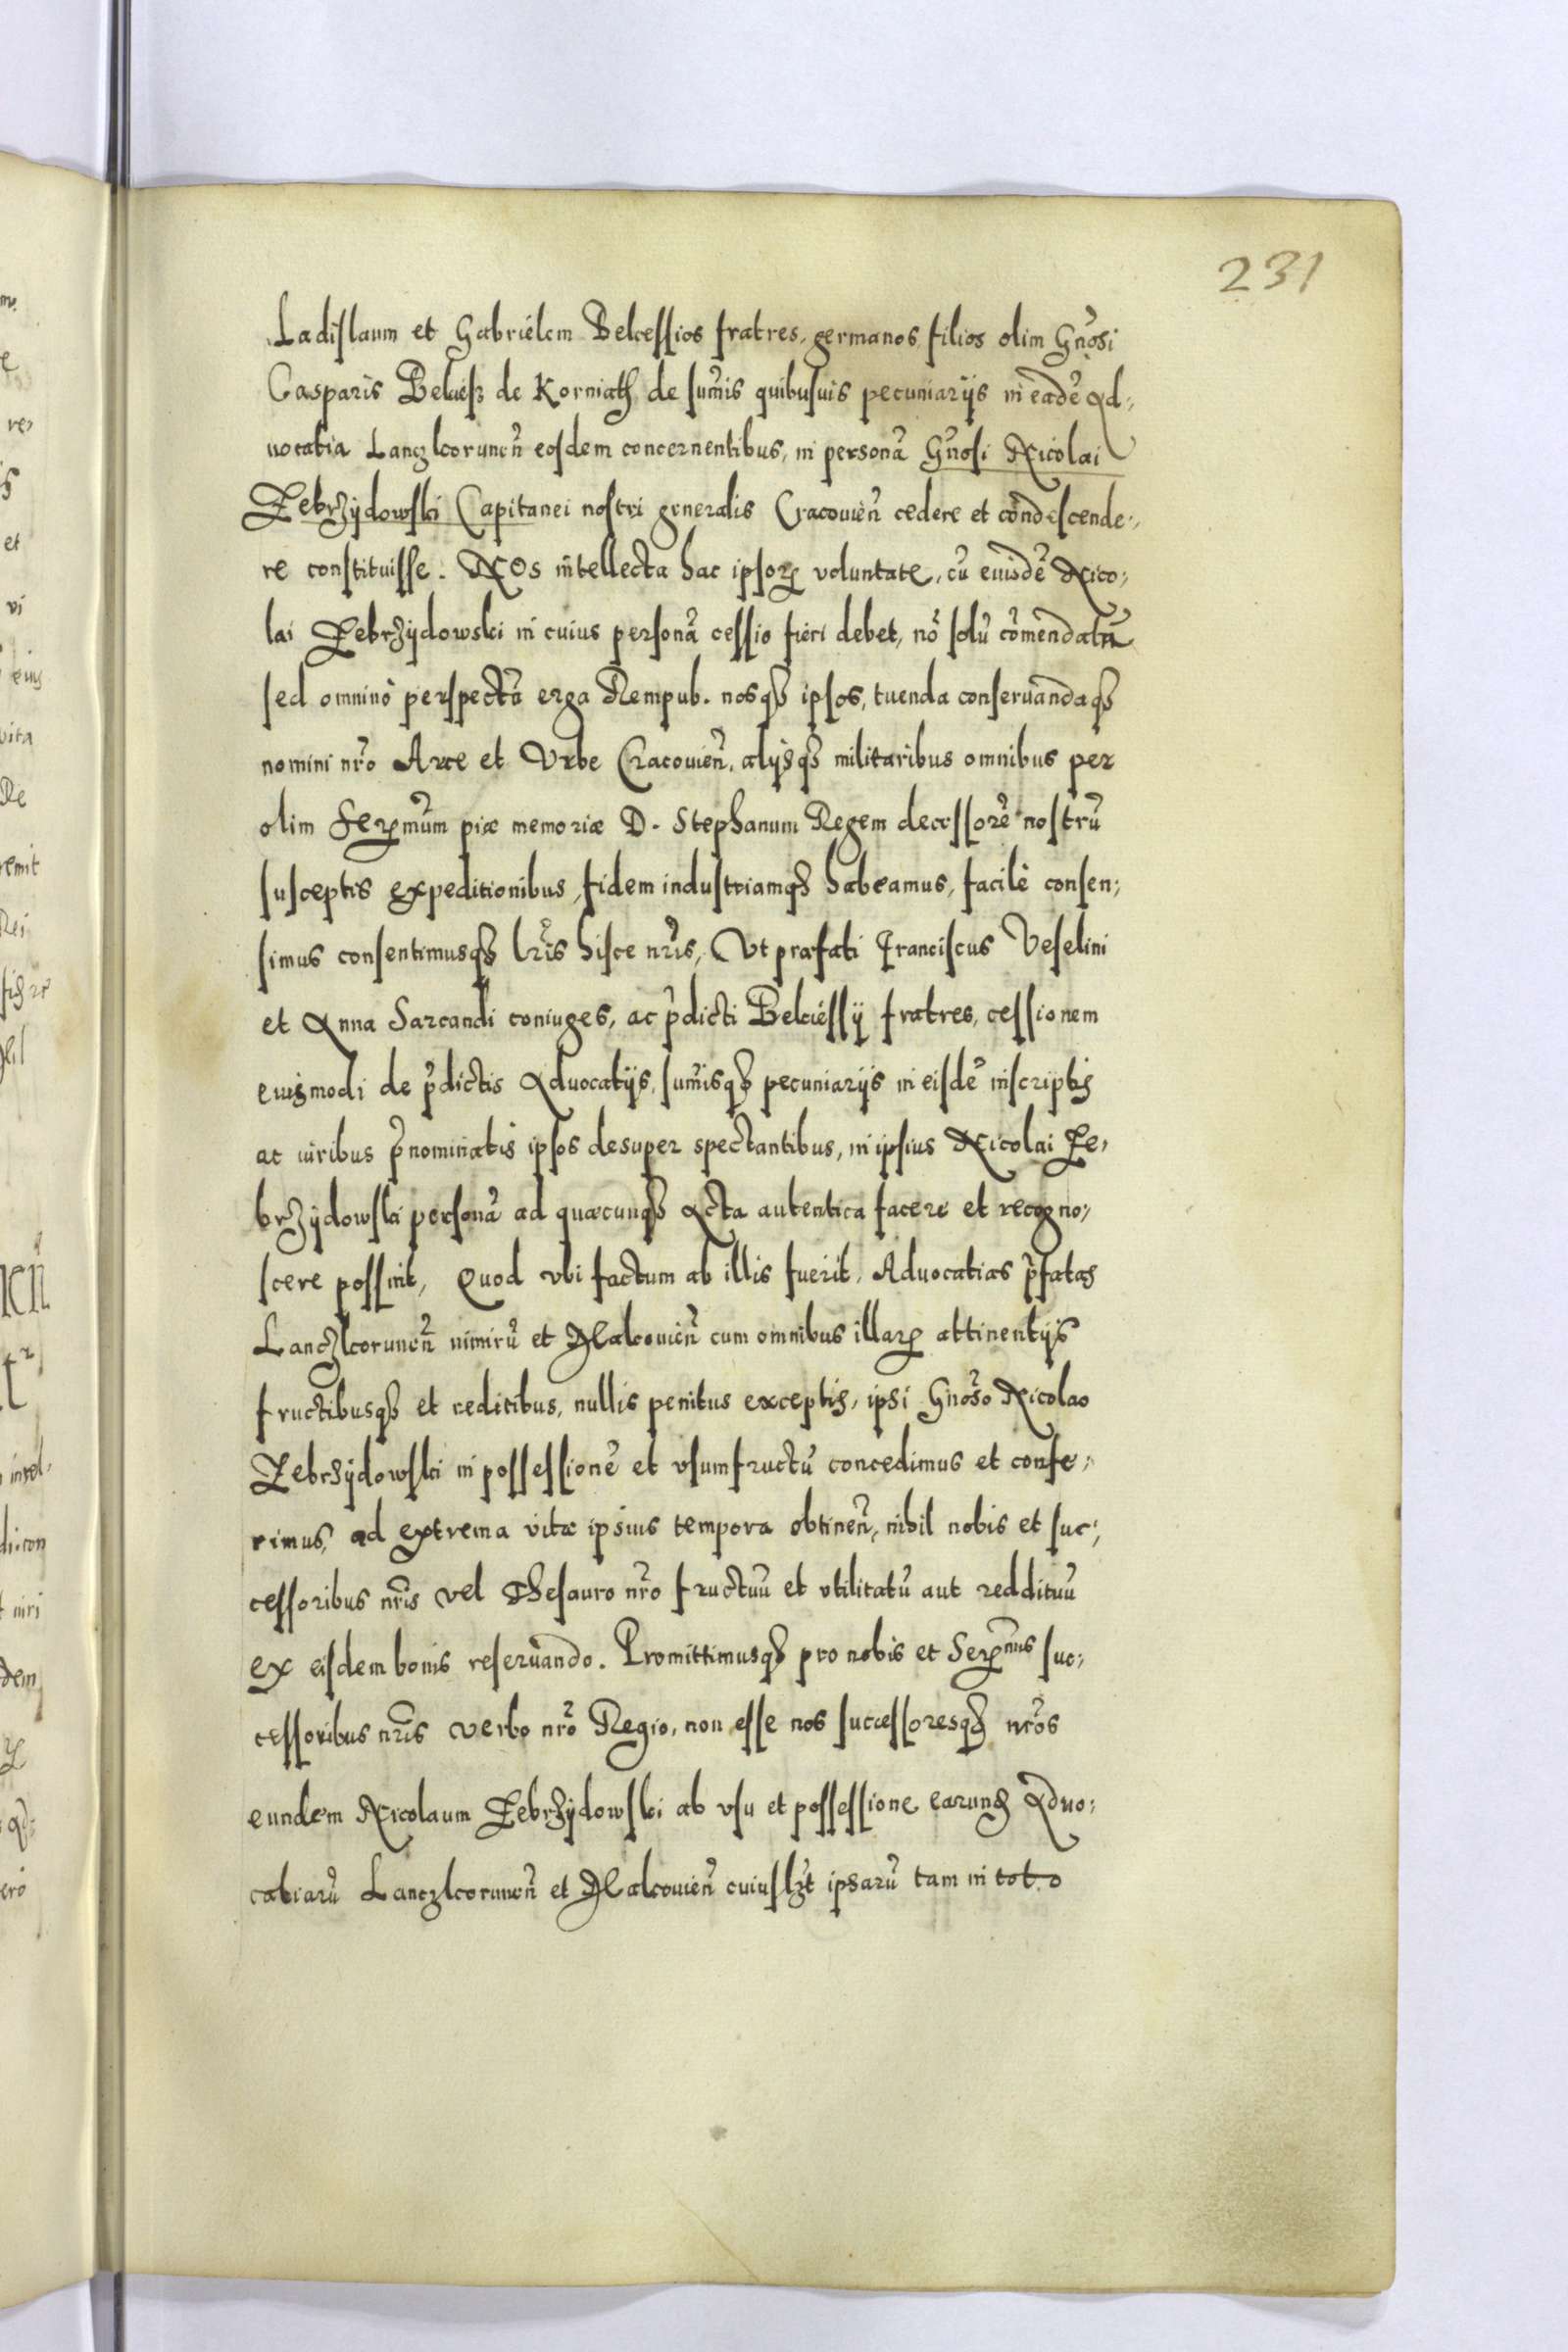 231
Ladislaum et Gabriélem Belcessios fratres, germanos filios olim Gñosi
Casparis Belcięsz de Korniath de sum̃is quibusuis pecuniarijs in eadẽ Ad,
uocatia Lanczkorunen̄ eosdem concernentibus, in personã Gñosi Nicolai
Zebrzydowski Capitanei nostri generalis Cracouień cedere et condescende,
re constituisse. NOs intellecta hac ipsoꝝ voluntate, cũ euisdẽ Nico,
lai Zebrzydowski in cuius personã cessio fieri debet, nõ solũ cõmendatã
sed omninò perspectã erga Rempub. nosqꝫ ipsos, tuenda conseruandaqꝫ
nomini nr̃o Arce et Vrbe Cracouień, alijsqꝫ militaribus omnibus per
olim Serꝫmũm piæ memoriæ D. Stephanum Regem decessorẽ nostrũ
susceptis expeditionibus, fidem industriamqꝫ habeamus, facilè consen,
simus consentimusqꝫ lr̃is hisce nr̃is, Vt præfati Franciscus Veselini
et Anna Sarcandi coniuges, ac p̃dicti Belcięssy fratres, cessionem
euismodi de p̃dictis Aduocatijs, sum̃isqꝫ pecuniarijs in eisdẽ inscriptis
ac iuribus p̃nominatis ipsos desuper spectantibus, in ipsius Nicolai Ze,
brzydowski personã ad quæcunqꝫ Acta autentica facere et recogno,
scere possint, Quod vbi factum ab illis fuerit, Aduocatias p̃fatas
Lanczkorunen̄ nimirũ et Malcouień cum omnibus illaꝝ attinentijs
fructibusqꝫ et reditibus, nullis penitus exceptis, ipsi Gñoso Nicolao
Zebrzydowski in possessionẽ et vsumfructũ concedimus et confe,
rimus, ad extrema vitæ ipsius tempora obtineñ, nihil nobis et suc,
cessoribus nr̃is vel Thesauro nr̃o fructuũ et vtilitatũ aut reddituũ
ex eisdem bonis reseruando. Promittimusqꝫ pro nobis et Serꝫmis suc,
cessoribus nr̃is verbo nr̃o Regio, non esse nos successoresqꝫ nr̃os
eundem Nicolaum Zebrzydowski ab vsu et possessione earund Aduo,
catiarũ Lanczkorunen̄ et Malcouień cuiuslꝫt ipsarũ tam in toto